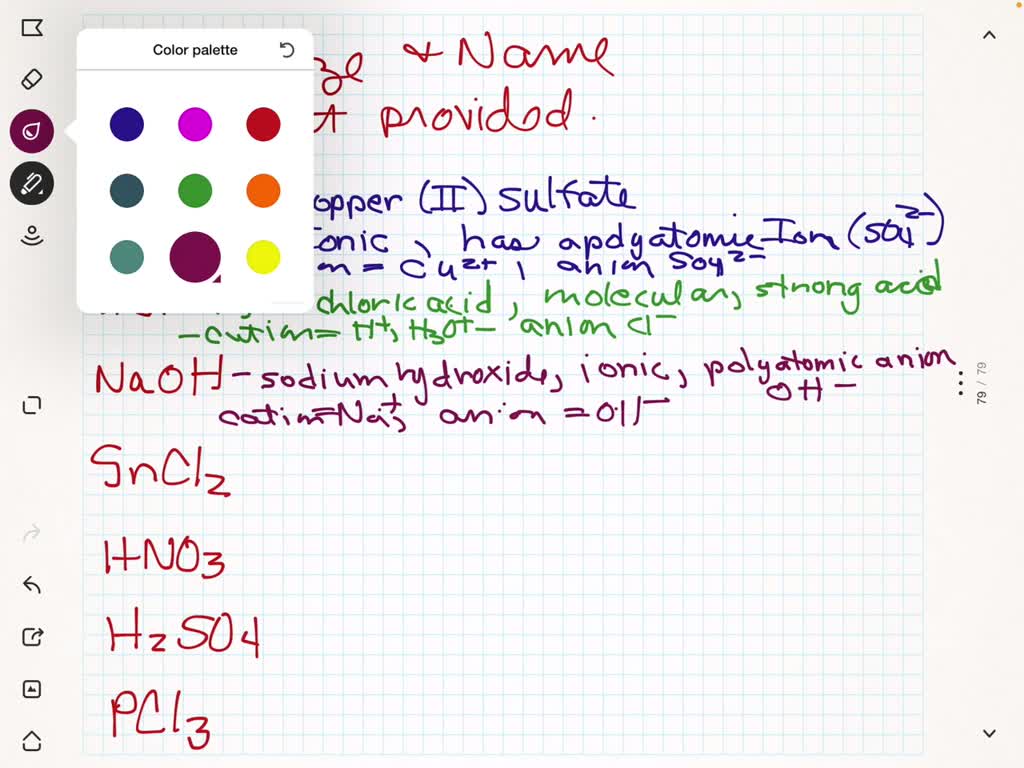 Color palette
& Name
provided.
opper (II) sulfate
ionic, has apolyatomic Ion (SO4 2-)
n = Cu2+, anion SO4 2-
chloric acid, molecular, strong acid
- cation = H+, H3O+ - anion Cl-
NaOH - sodium hydroxide, ionic, polyatomic anion
OH-
cation=Na+, anion = OH-
79 / 79
SnCl2
HNO3
H2SO4
PCl3